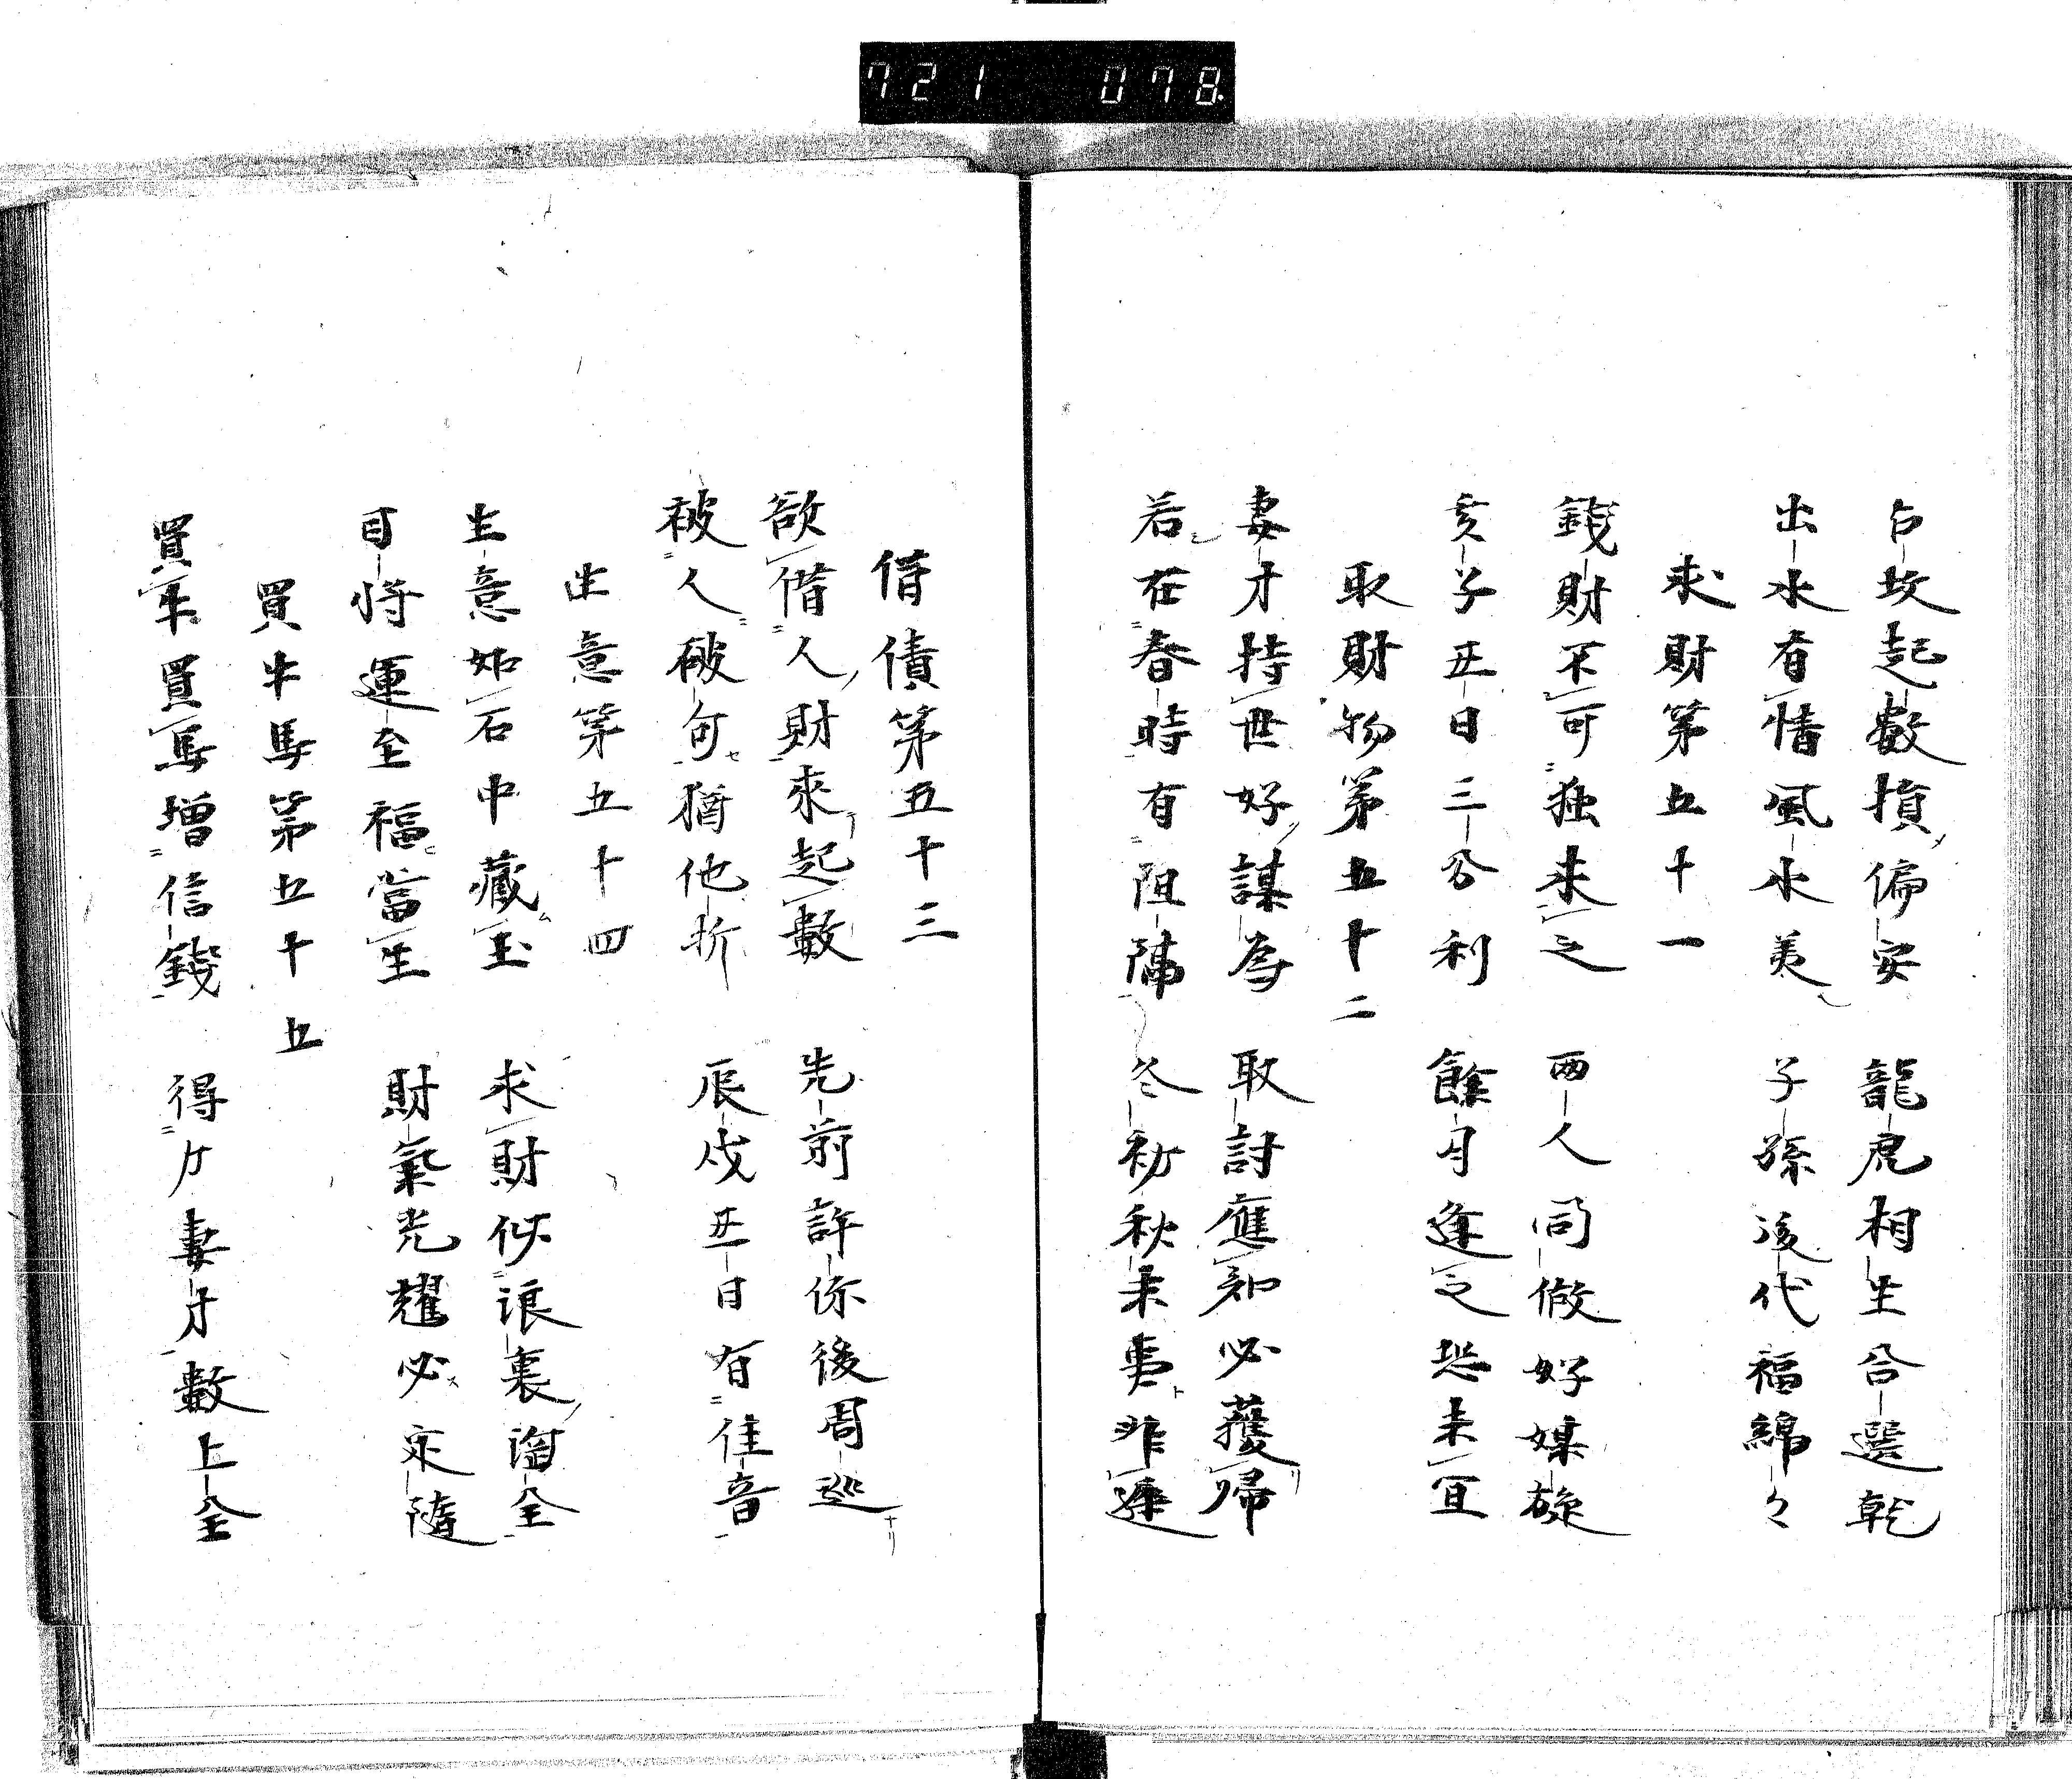 721 078
占坟起數損偏安 龍虎相生合選乾
出水有情風水美 子孫後代福綿々
求財第五十一
錢財不可独未之 兩人同做好媒旋
亥子丑日三分利 餘日逢之恐未宜
取財物第五十二
妻才持世好謀為 取討應知必獲帰
若在春時有阻滯 冬初秋末事非遲
借債第五十三
欲借人財來起數 先前許你後周巡
被人破句猶他折 辰戌丑日有佳音
生意第五十四
生意如石中藏玉 求財似浪裏淘金
目将運至福當生 財氣光耀必定随
買牛馬第五十五
買牛買馬增信錢 得才妻才數上全